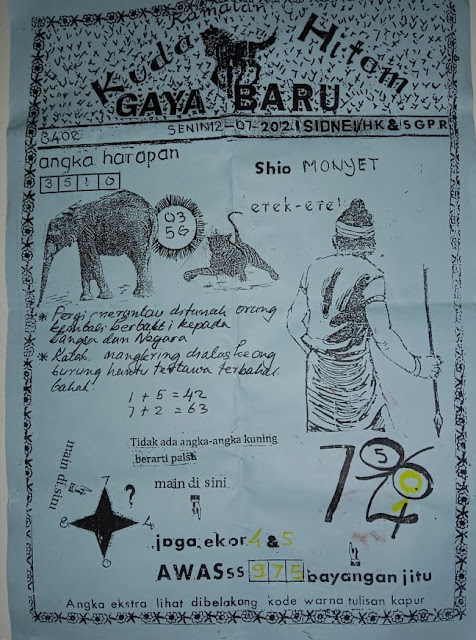 Ramalan
Kuda Hitam
GAYA BARU
SENIN 12-07-2021 SIDNEI/HK & SGPR
3402
angka harapan
3510
Shio MONYET
erek-ere!
03
56
* Pergi merantau ditanah orang
kembali berbakti kepada
bangsa dan Negara
* Katak
burung hantu tertawa
1 + 5 = 42
7 + 2 = 63
Tidak ada angka-angka kuning
berarti palsu
main di sini
main di sini
7
?
8
4
0
7
5
0
jaga ekor 4 & 5
AWASss 975 bayangan jitu
Angka ekstra lihat dibelakang kode warna tulisan kapur